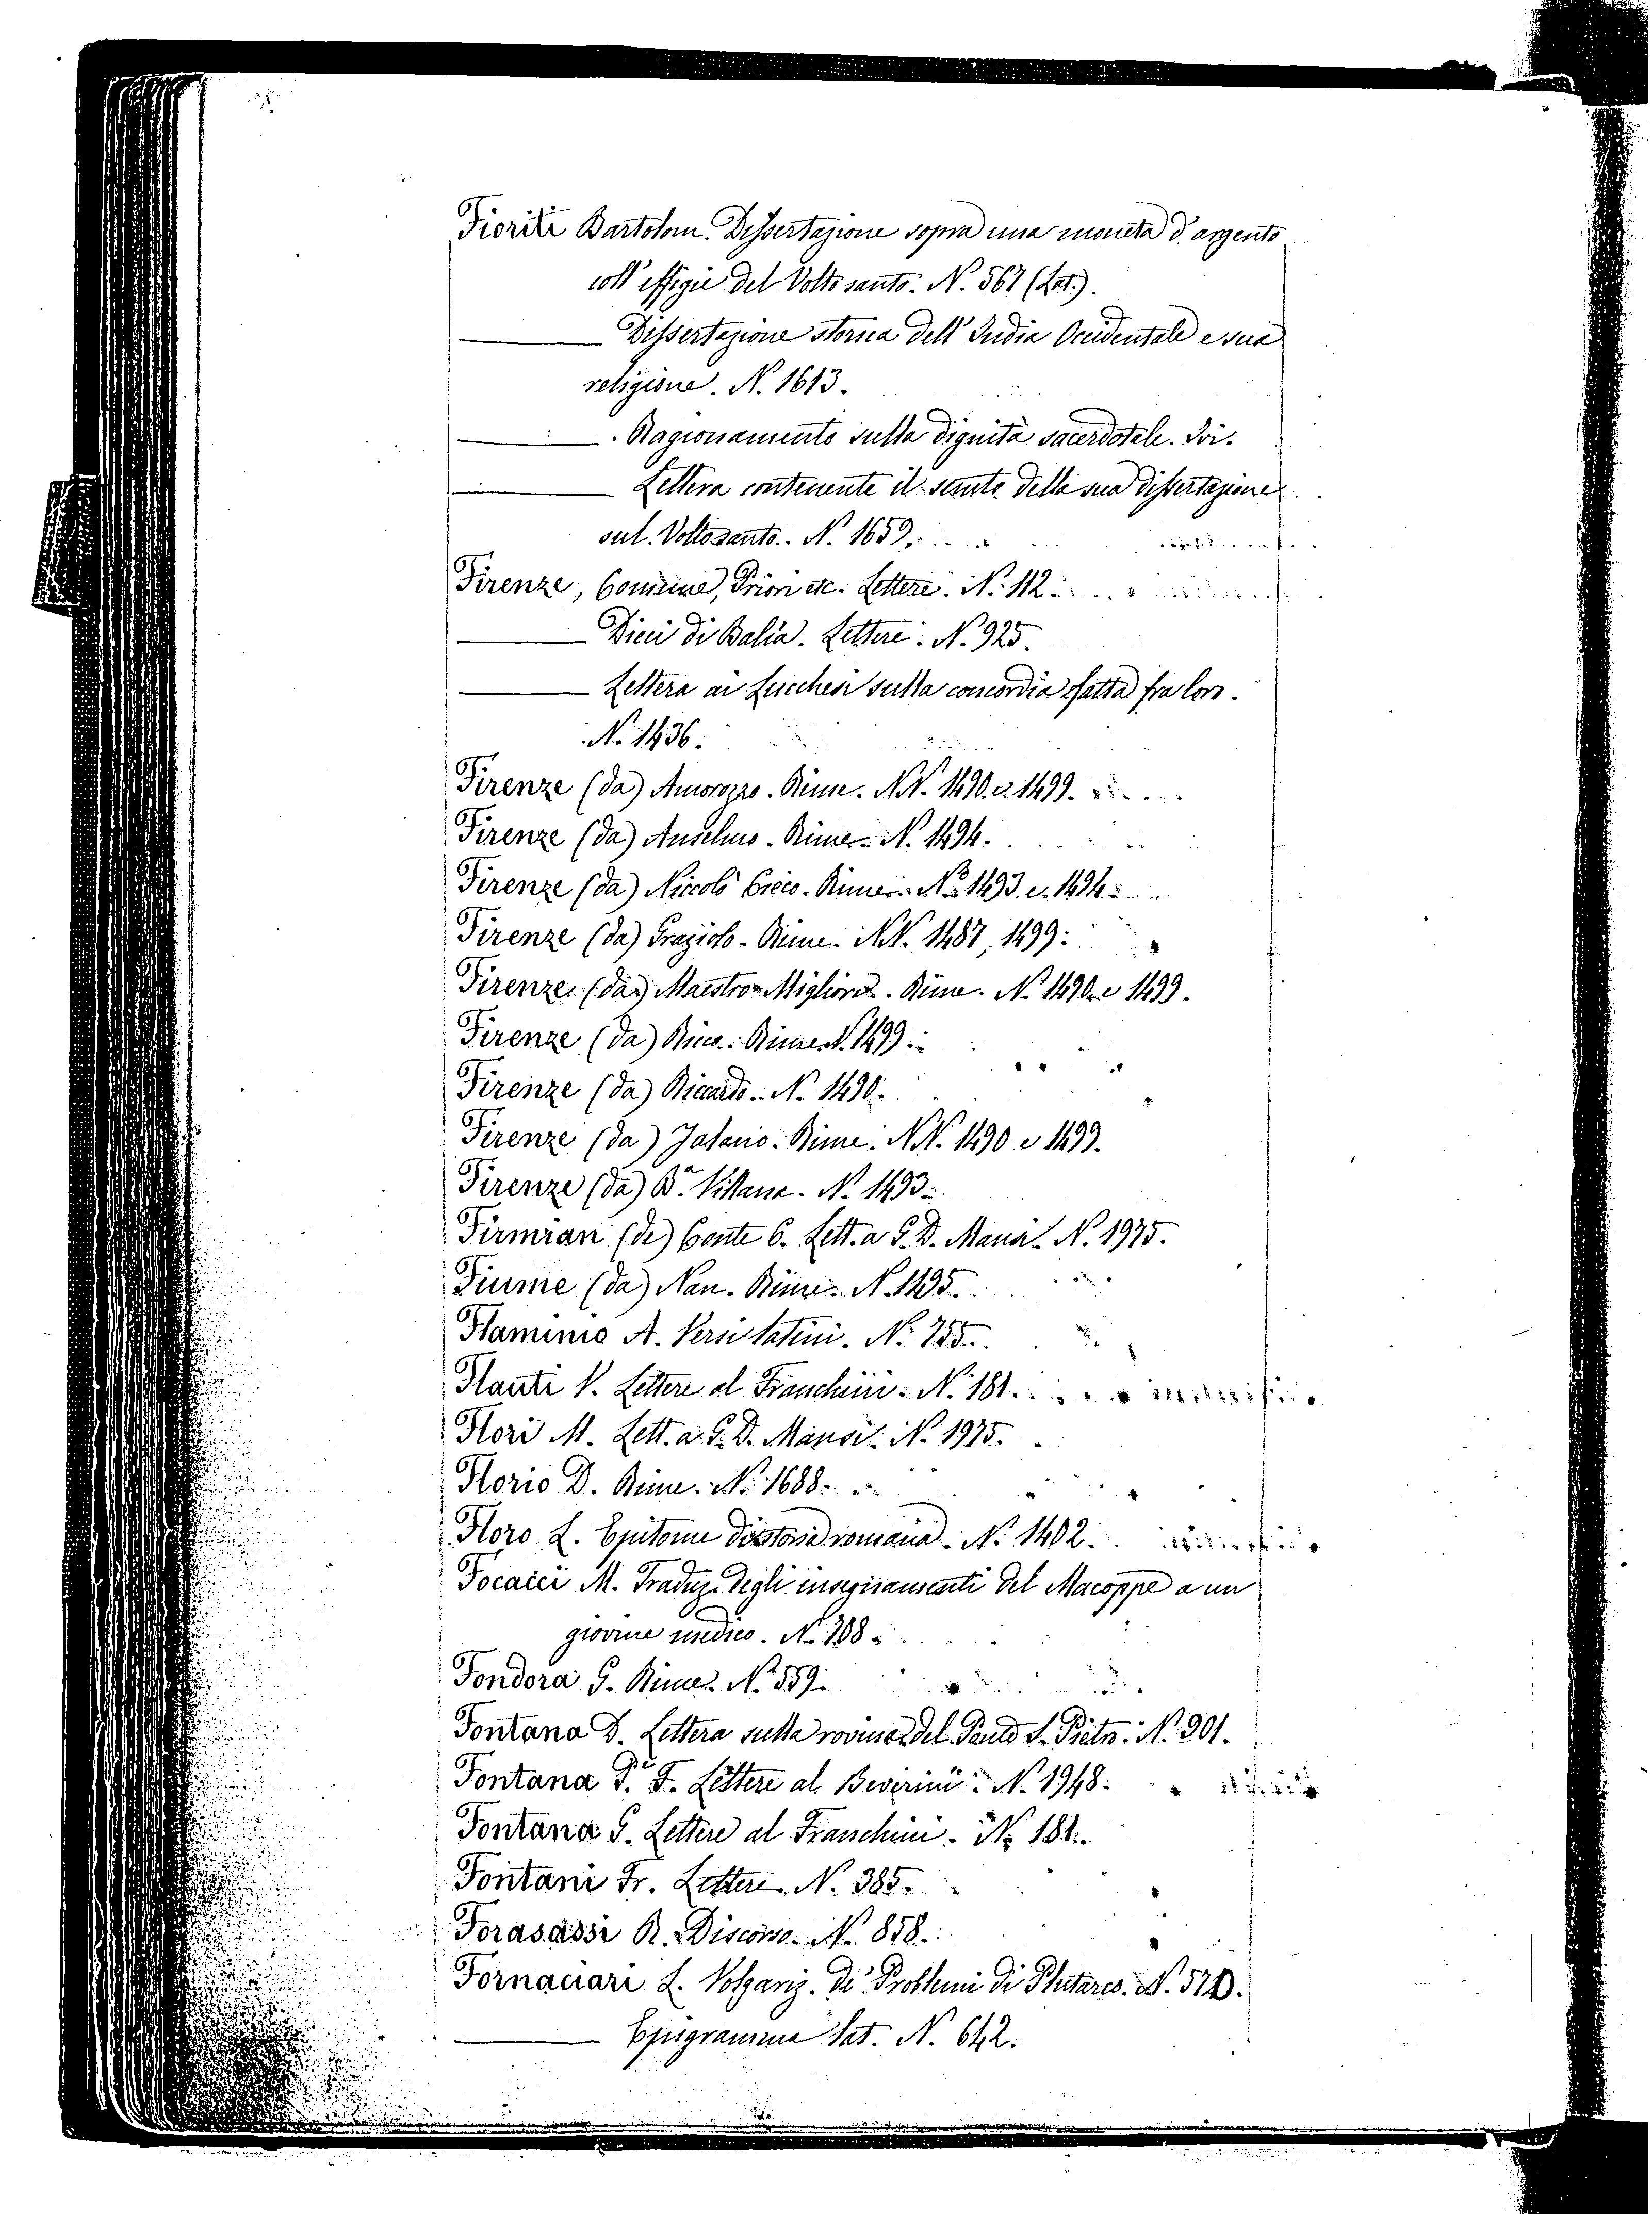 Fioriti Bartolom. Dissertazione sopra una moneta d'argento
coll'effigie del Volto santo. N. 567 (Lat.).
Dissertazione storica dell'India Occidentale e sua
religione. N. 1613.
Ragionamento sulla dignità sacerdotale. Ivi.
Lettera contenente il sunto della sua dissertazione
sul Volto santo. N. 1659.
Firenze, Comune, Priori etc. Lettere. N. 112.
Dieci di Balìa. Lettere. N. 925.
Lettera ai Lucchesi sulla concordia fatta fra loro.
N. 1436.
Firenze (da) Amorozzo. Rime. NN. 1490 e 1499.
Firenze (da) Anselmo. Rime. N. 1494.
Firenze (da) Niccolò Cieco. Rime. N. 1493 e 1494.
Firenze (da) Graziolo. Rime. NN. 1487, 1499.
Firenze (da) Maestro Migliore. Rime. N. 1490 e 1499.
Firenze (da) Ricco. Rime. N. 1499.
Firenze (da) Riccardo. N. 1490.
Firenze (da) Rime. NN. 1490 e 1499.
Firenze (da) B.a Villana. N. 1493.
Firmian (di) Conte C. Lett. a G. D. Mansi. N. 1975.
Fiume (da) Nan. Rime. N. 1495.
Flaminio A. Versi latini. N. 755.
Flauti V. Lettere al Franchini. N. 181.
Flori M. Lett. a G. D. Mansi. N. 1975.
Florio D. Rime. N. 1688.
Floro L. Epitome di storia romana. N. 1402.
Focacci M. Traduz. degli insegnamenti del Macoppe a un
giovine medico. N. 708.
Fondora G. Rime. N. 559.
Fontana D. Lettera sulla rovina del S. Pietro. N. 901.
Fontana F. Lettere al Beverini. N. 1948.
Fontana G. Lettere al Franchini. N. 181.
Fontani Fr. Lettere. N. 385.
Forasassi R. Discorso. N. 858.
Fornaciari L. Volgariz. de' Problemi di Plutarco. N.
Epigramma lat. N. 642.